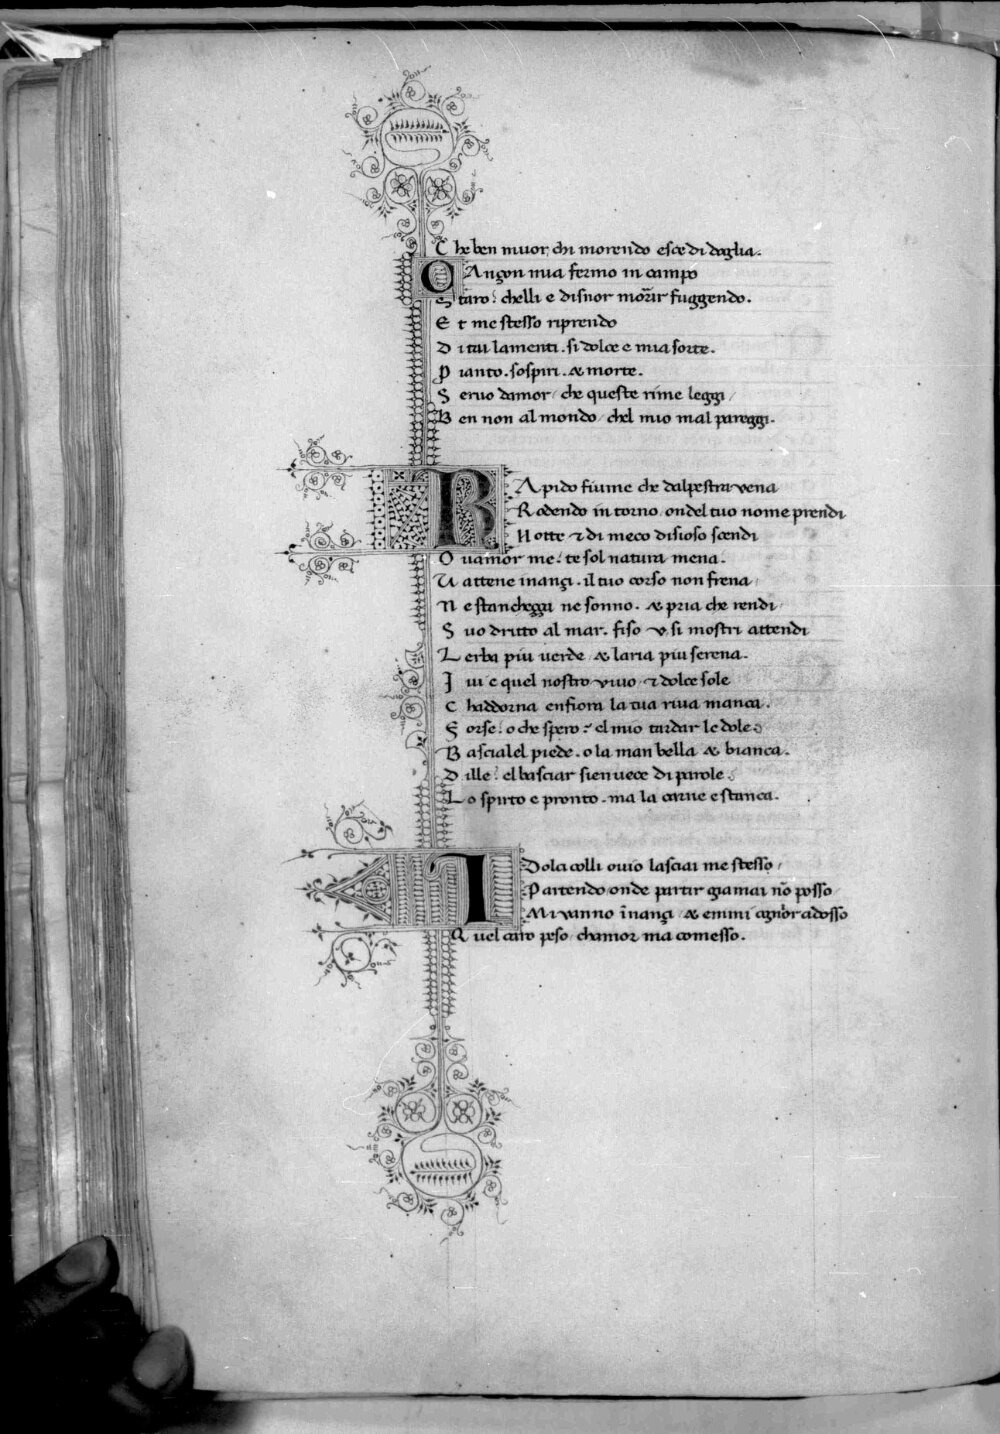 C he ben muor chi morendo esce di doglia.
CAnçon mia fermo in campo
S taro: chelli e disnor morir fuggendo.
E t me stesso riprendo
D i tai lamenti. si dolce e mia sorte.
P ianto. sospiri. & morte.
S eruo damor/ che queste rime leggi/
B en non al mondo/ chel mio mal pareggi.
RApido fiume che dalpestra vena
Rodendo in torno/ ondel tuo nome prendi
Notte & di meco disioso scendi
O uamor me: te sol natura mena.
U attene inançi. il tuo corso non frena/
N e stancheçça ne sonno. & pria che rendi/
S uo dritto al mar. fiso v si mostri attendi
L erba piu uerde & laria piu serena.
I ui e quel nostro viuo & dolce sole
C haddorna enfiora la tua riua manca.
F orse: o che spero: el mio tardar le dole.
B ascialel piede. o la man bella & bianca.
D ille: el basciar sien uece di parole.
L o spirto e pronto. ma la carne e stanca.
I Dolci colli ouio lasciai me stesso/
Partendo/ onde partir giamai nõ posso
Mi vanno ĩnançi & emmi agnor adosso
Q uel caro peso/ chamor ma comesso.